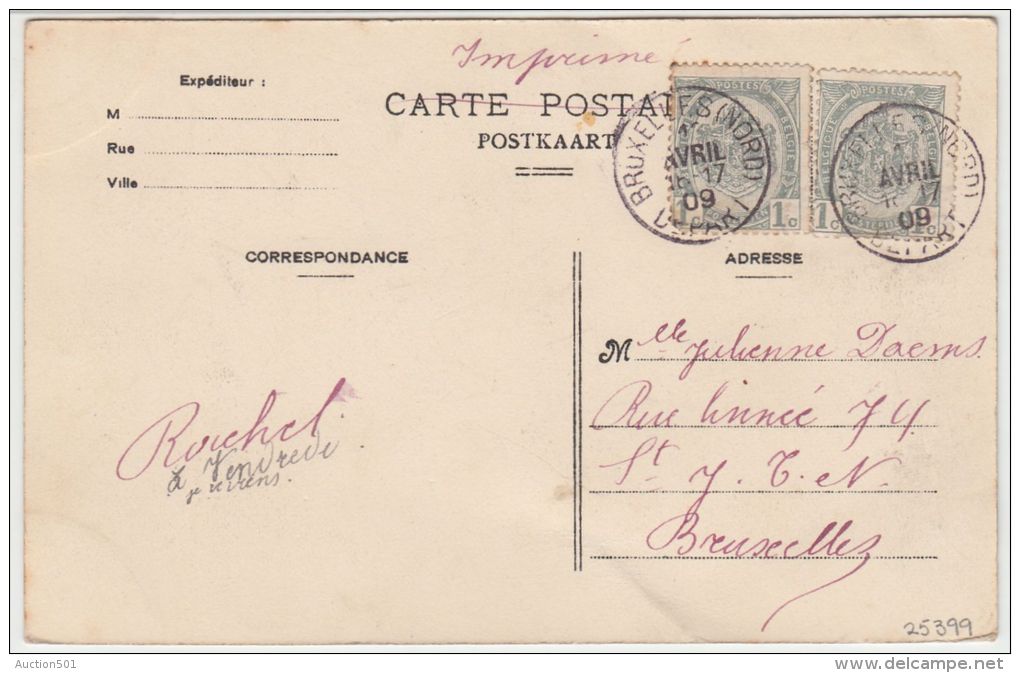 Imprimé
Expéditeur :
M
Rue
Ville
CARTE POSTA
POSTKAART
BRUXELLES (NORD)
AVRIL
17
09
DEPART
BRUXELLES (NORD)
1
AVRIL
17
09
DEPART
POSTES
1c 1c
POSTES
1c 1c
CORRESPONDANCE
ADRESSE
Mlle Julienne Daems.
Rue Linnée 74
St J. T. eN.
Bruxelles
Rachel.
Vendredi
je viens.
25399
Auction501
delcampe.net